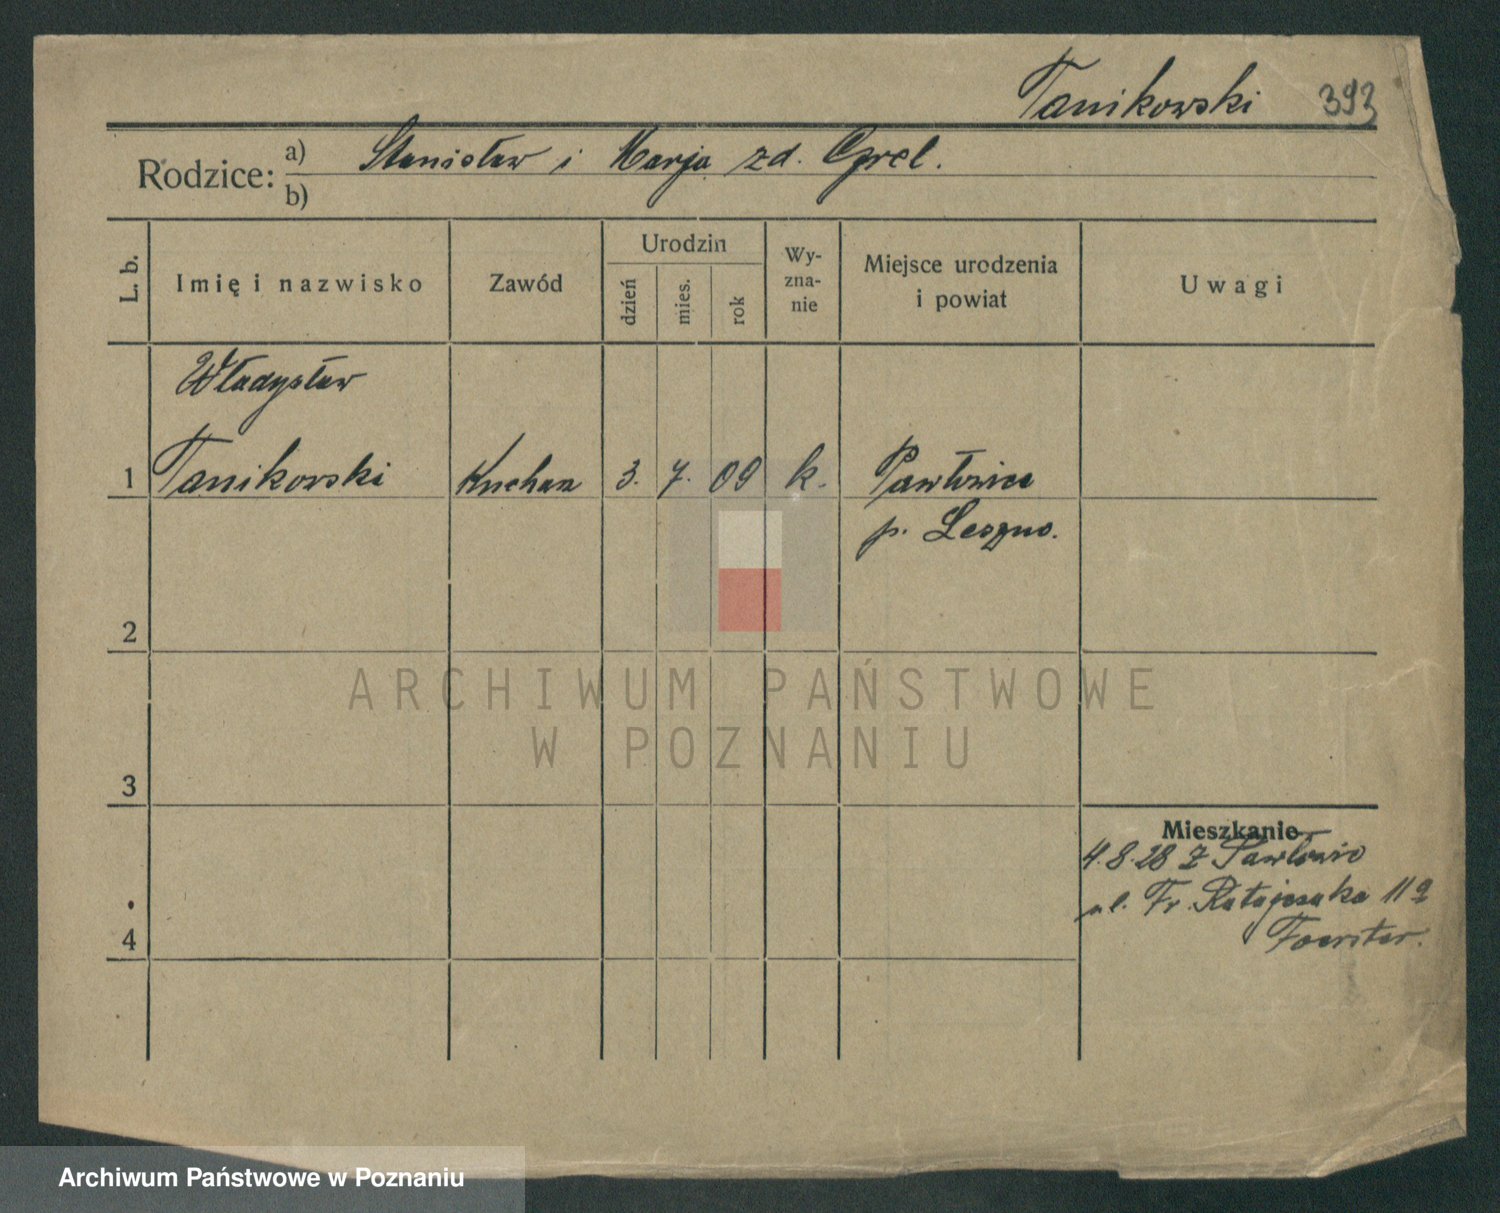 Tanikowski 393
Rodzice: a) Stanisław i Marja zd.
b)
L. b.
Imię i nazwisko
Zawód
Urodzin
dzień
mies.
rok
Wy-
zna-
nie
Miejsce urodzenia
i powiat
Uwagi
Władysław
1 Tanikowski Kucharz 3. 7. 09 k. Pawłowice
p. Leszno.
2
3
4
Mieszkanie
4.8.28 z Pawłowic
ul. Fr. Ratajczaka 11a
Foerster.
ARCHIWUM PAŃSTWOWE
W POZNANIU
Archiwum Państwowe w Poznaniu